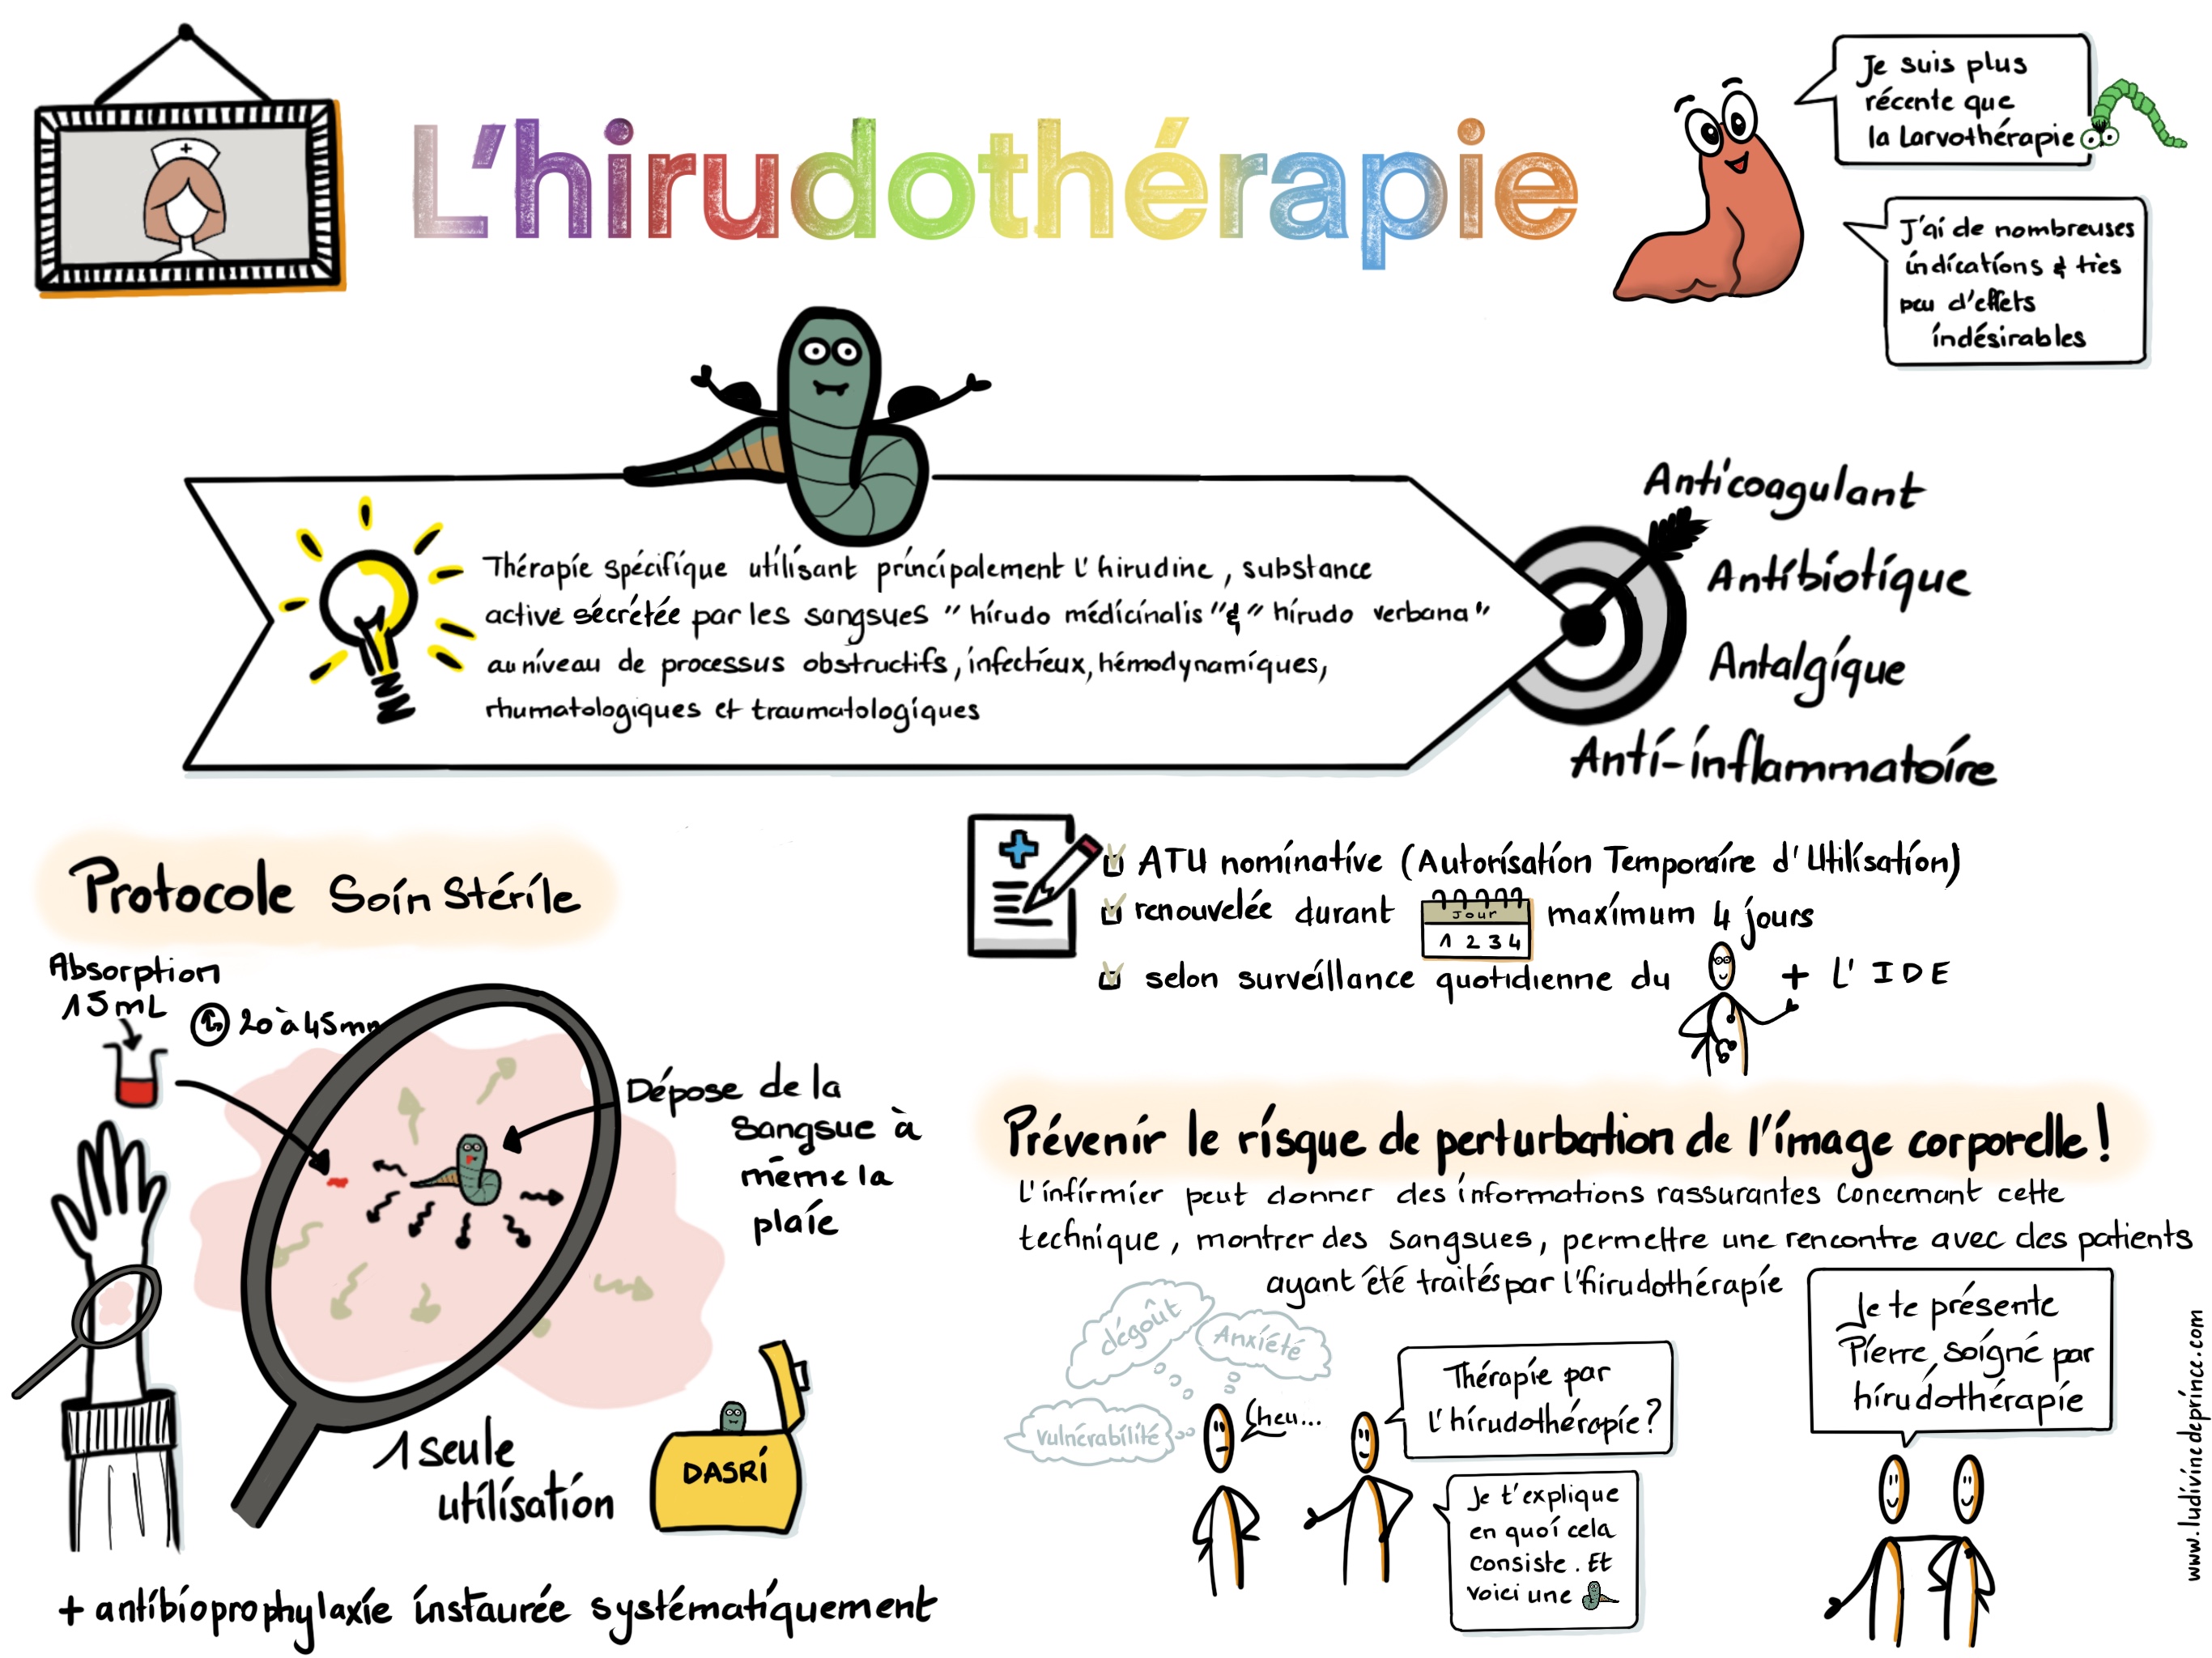 L'hirudothérapie
Je suis plus
récente que
la Larvothérapie
J'ai de nombreuses
indications & très
peu d'effets
indésirables
Thérapie spécifique utilisant principalement l'hirudine, substance
active sécrétée par les sangsues "hirudo médicinalis" & "hirudo verbana"
au niveau de processus obstructifs, infectieux, hémodynamiques,
rhumatologiques et traumatologiques
Anticoagulant
Antibiotique
Antalgique
Anti-inflammatoire
Protocole Soin Stérile
Absorption
15mL
20 à 45mn
Dépose de la
sangsue à
même la
plaie
1 seule
utilisation
DASRi
+ antibioprophylaxie instaurée systématiquement
ATU nominative (Autorisation Temporaire d'Utilisation)
renouvelée durant
Jour
1 2 3 4
maximum 4 jours
selon surveillance quotidienne du + L'IDE
Prévenir le risque de perturbation de l'image corporelle!
L'infirmier peut donner des informations rassurantes concernant cette
technique, montrer des sangsues, permettre une rencontre avec des patients
ayant été traités par l'hirudothérapie
dégoût
Anxiété
vulnérabilité
Cheu...
Thérapie par
l'hirudothérapie?
Je t'explique
en quoi cela
consiste. Et
voici une
Je te présente
Pierre, soigné par
hirudothérapie
www.ludivinedeprince.com